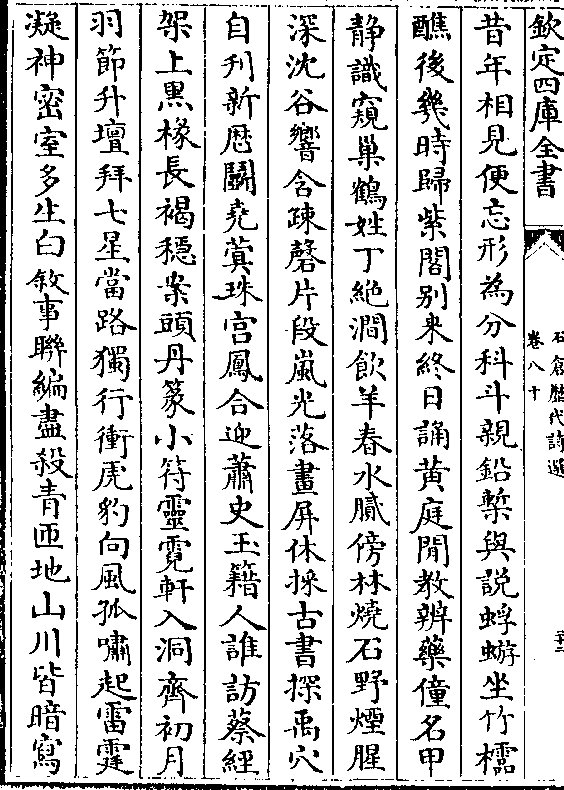 欽定四庫全書
石倉歷代詩選
卷八十
昔年相見便忘形為分科斗親鉛槧與說蜉蝣坐竹欞
醮後幾時歸紫閣别來終日誦黄庭閒教辨藥僮名甲
静識窺巢鶴姓丁絶澗飲羊春水膩傍林燒石野煙腥
深沈谷響含疎磬片段嵐光落畫屏休採古書探禹穴
自刋新厯鬭堯蓂珠宫鳳合迎蕭史玉籍人誰訪蔡經
架上黒椽長褐穏案頭丹篆小符靈霓軒入洞齊初月
羽節升壇拜七星當路獨行衝虎豹向風孤嘯起雷霆
凝神密室多生白敘事聮編盡殺青匝地山川皆暗寫